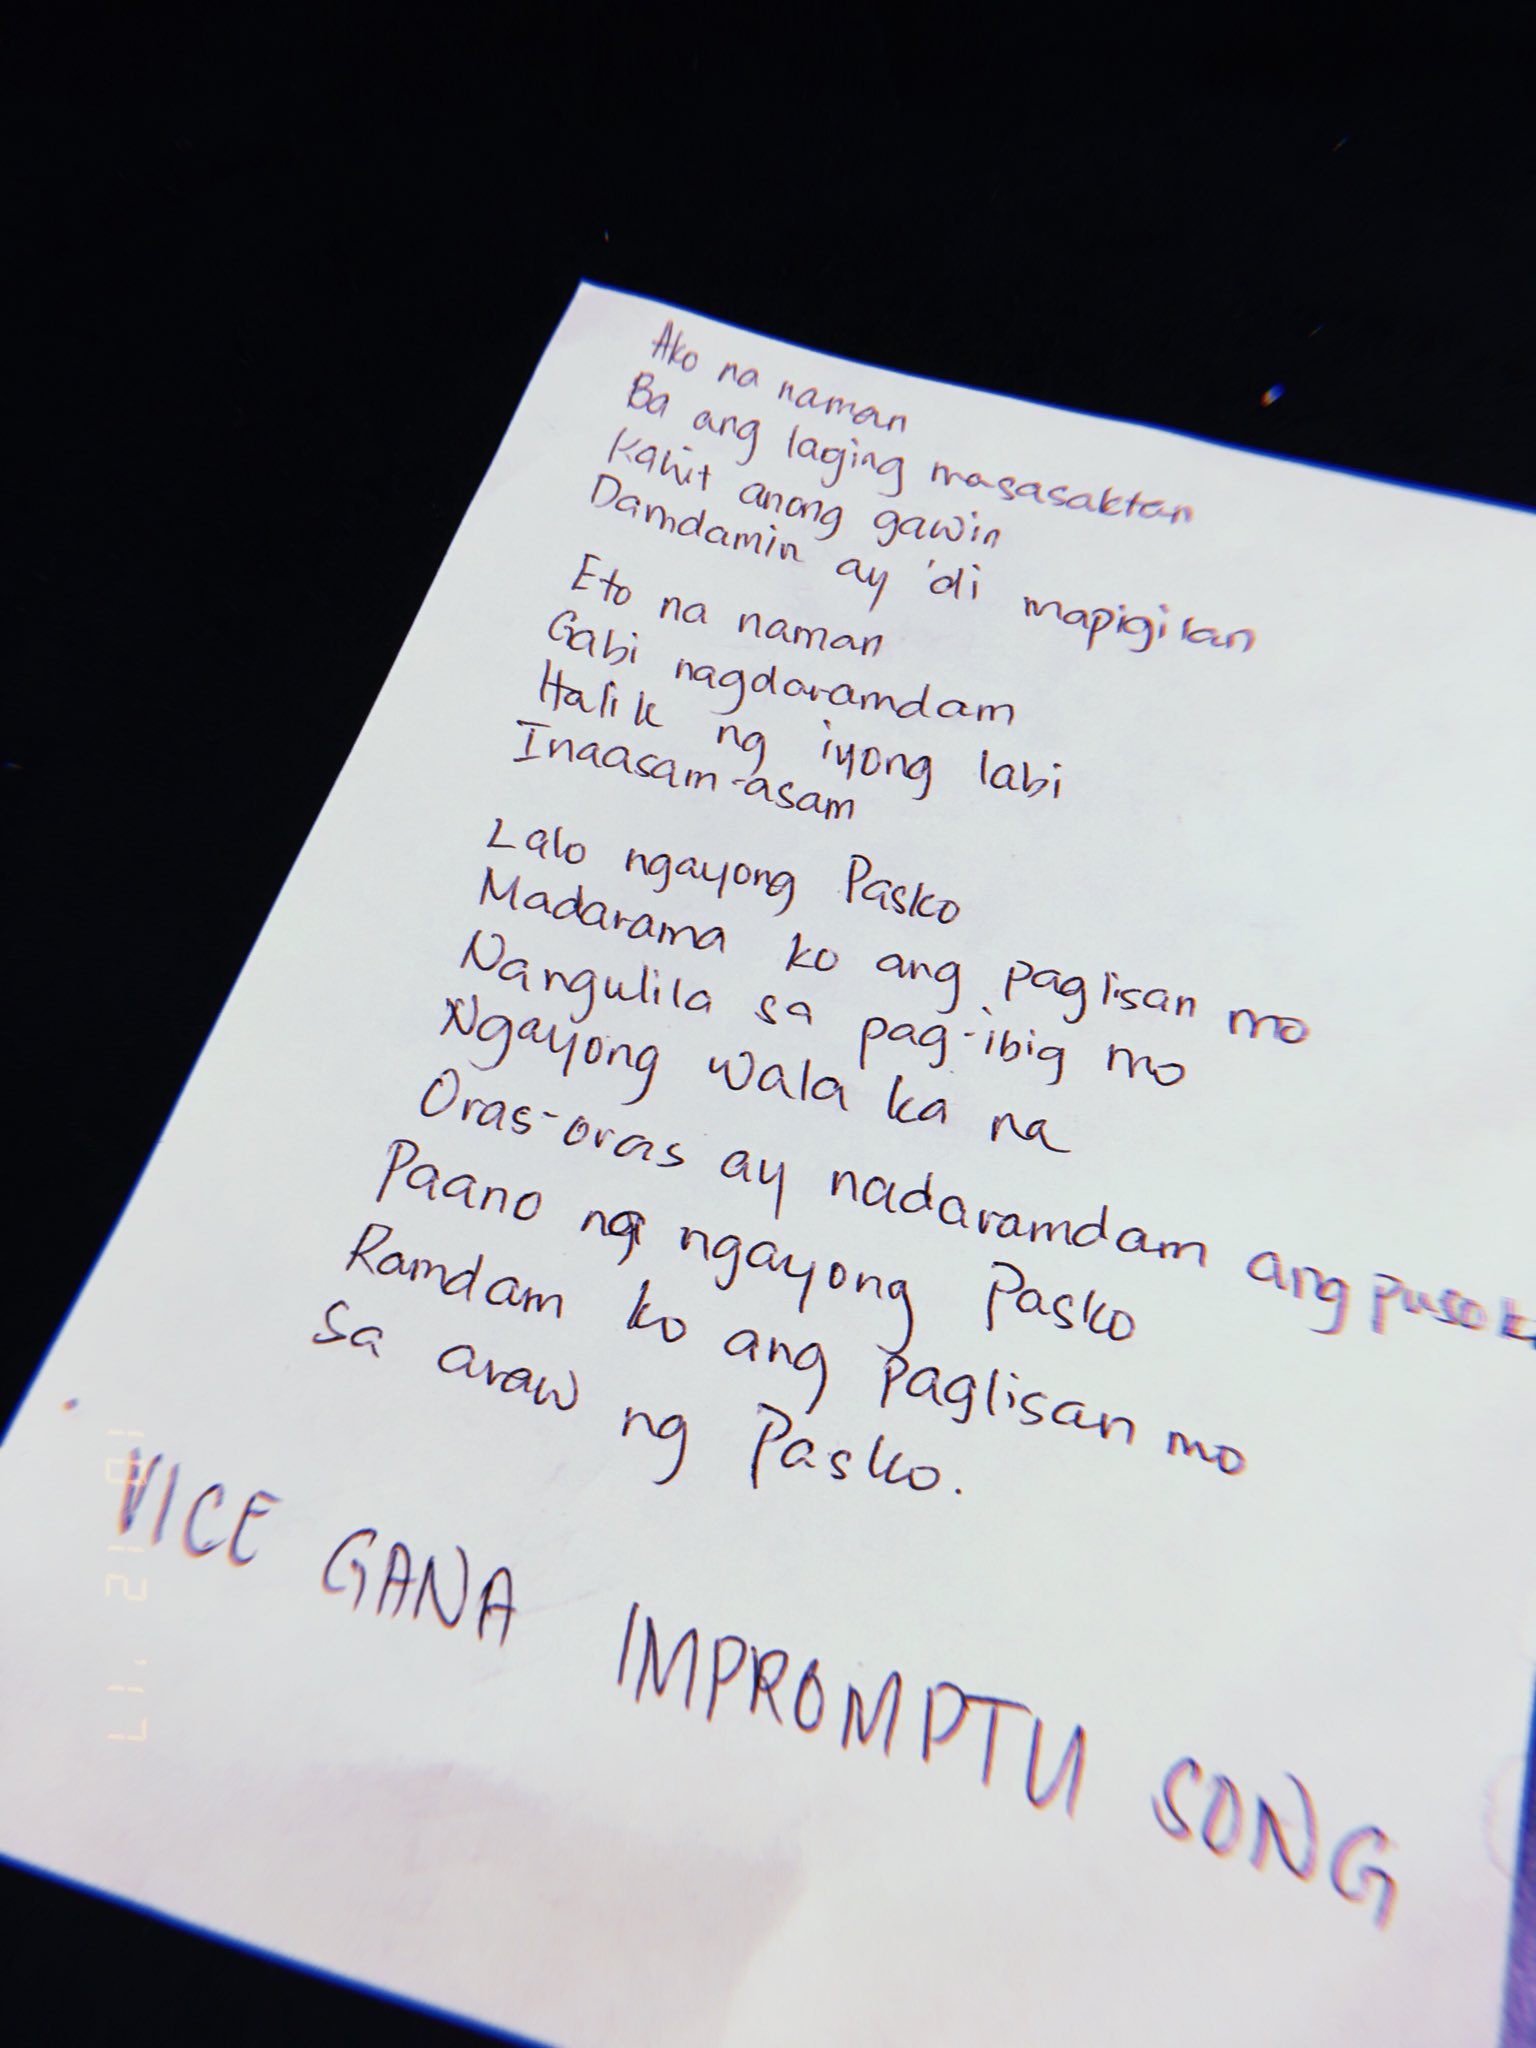 Ako na naman
Ba ang laging masasaktan
Kahit anong gawin
Damdamin ay 'di mapigilan
Eto na naman
Gabi nagdaramdam
Halik ng iyong labi
Inaasam-asam
Lalo ngayong Pasko
Madarama ko ang paglisan mo
Nangulila sa pag-ibig mo
Ngayong wala ka na
Oras-oras ay nadaramdam ang puso
Paano na ngayong Pasko
Ramdam ko ang paglisan mo
Sa araw ng Pasko.
VICE GANA IMPROMPTU SONG